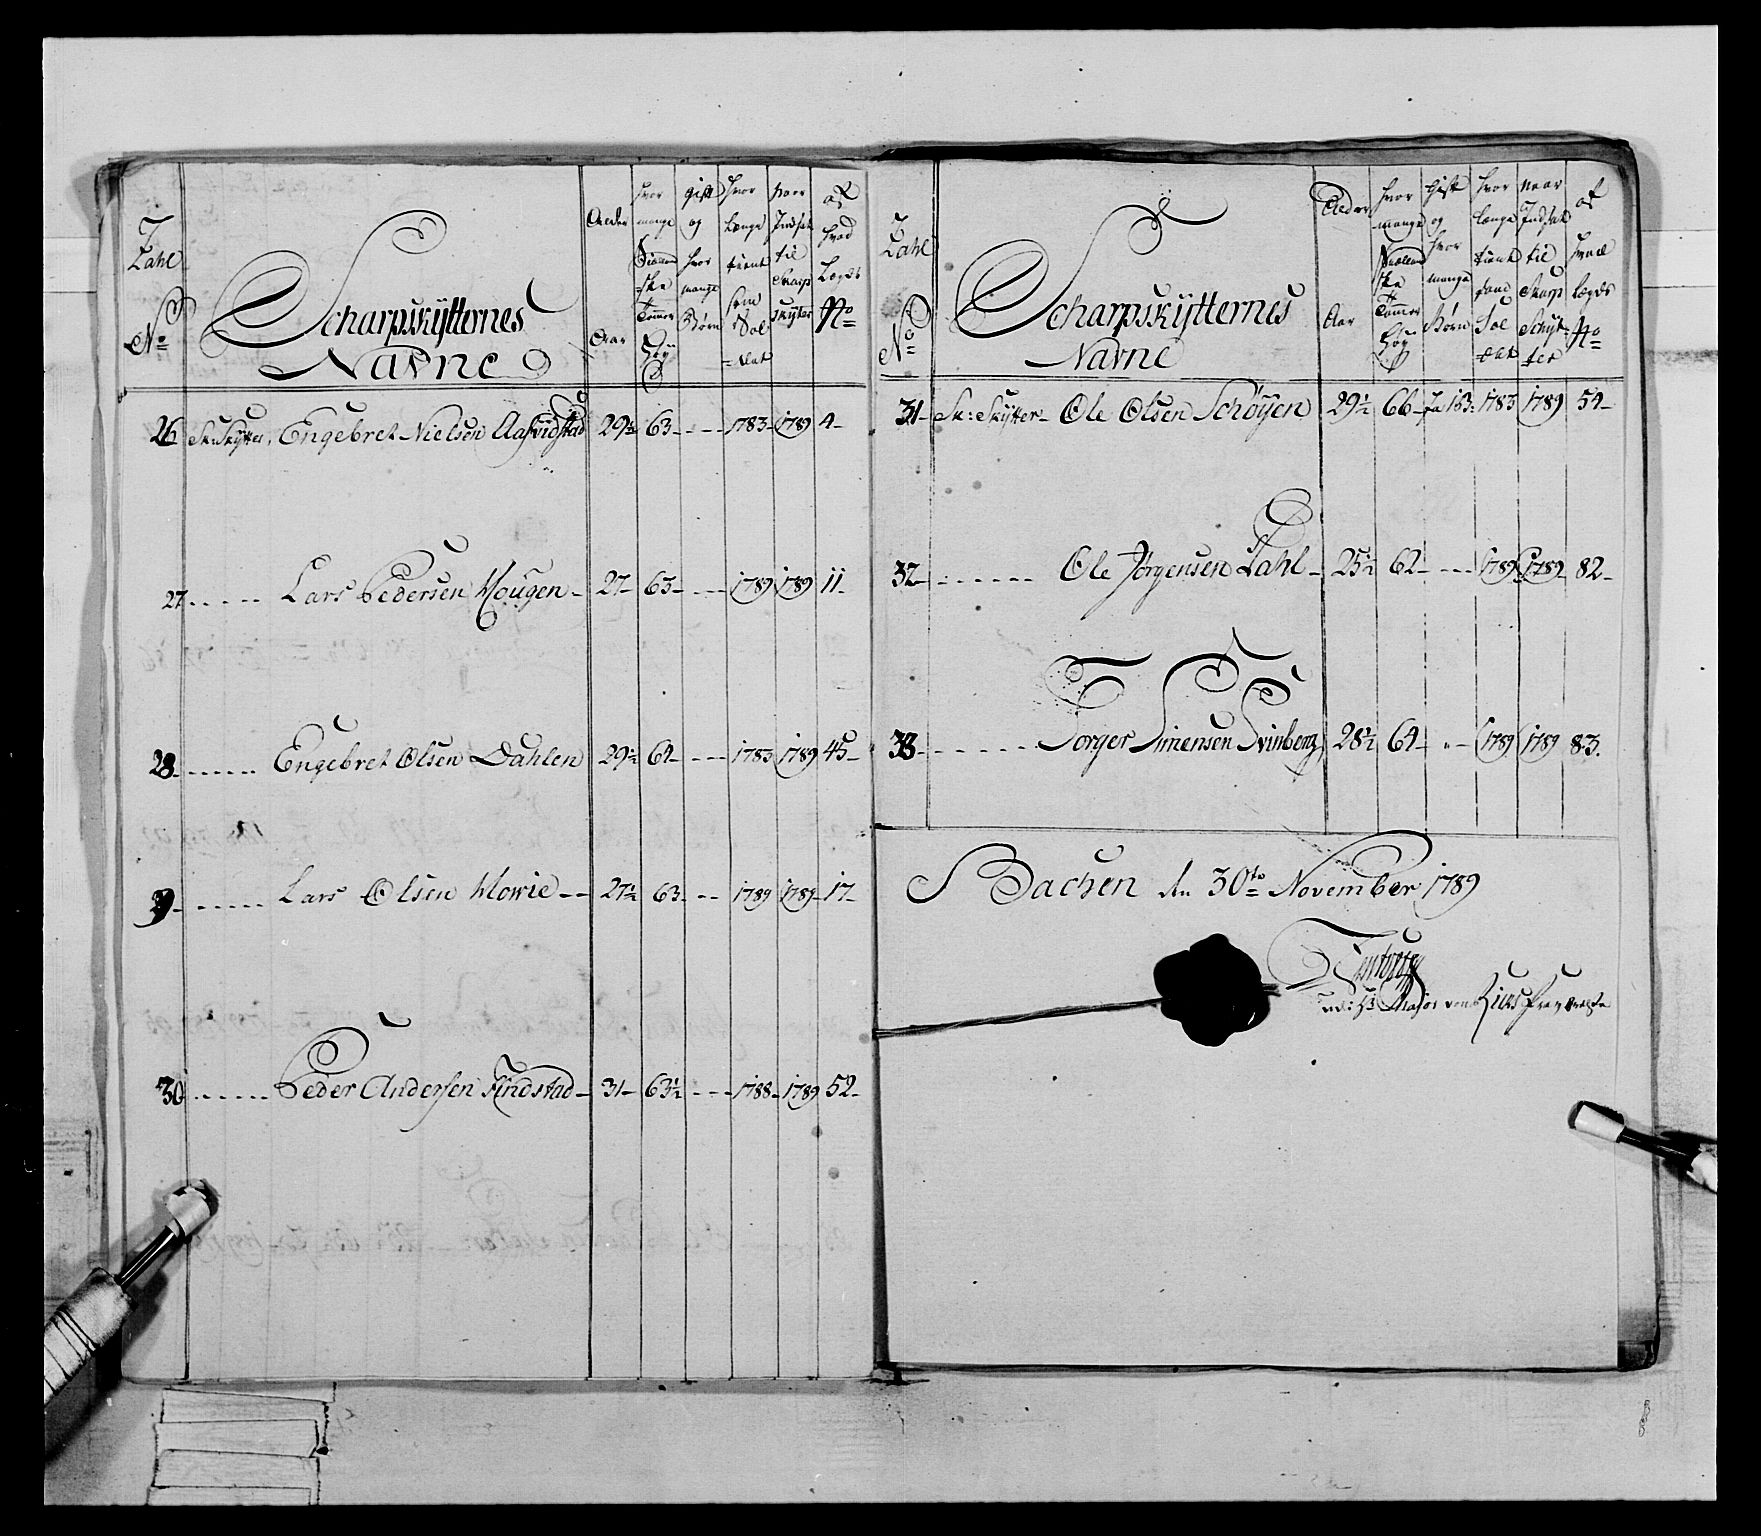 Zahl No Scharpskÿtternes Navne Alder Aar hvor mange Siælland ske Tommer Høÿ gift og hvor mange Børn hvor længe tient som Sol dat naar Indsat til Skarp skÿtter af hvad Lægds No
26 Sk: Skÿtter, Engebret Nielsen Aasvidstad 29½ 63 - - - 1783 1789 4
27 - - - - - Lars Pedersen Hougen 27 63 - - - 1789 1789 11
28 - - - - - Engebret Olsen Dahlen 29½ 64 - - - 1783 1789 45
29 - - - - - Lars Olsen Mowie 27½ 63 - - 1789 1789 17
30 - - - - - Peder Andersen Findstad 31 63½ - - - 1788 1789 52
Zahl No Scharpskÿtternes Navne Alder Aar hvor mange Siælland ske Tommer Høÿ Gift og hvor mange Børn hvor længe tient som Sol dat naar Indsat til Skarp Schÿt ter af hvad Lægds No
31 Sk: Skÿtter Ole Olsen Schøÿen 29½ 66 Ja 1 B: 1783 1789 54
32 - - - - - Ole Jørgensen Dahl 25½ 62 - - - 1789 1789 82
33 - - - - - Torger Simensen Svinberg 28½ 64 - - 1789 1789 83.
Bachen den 30te November 1789
Major von